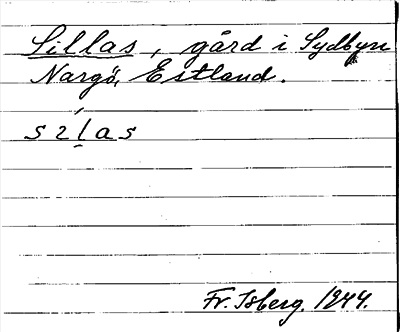 Sillas, gård i Sydbyn
Nargö, Estland.
sílas
Fr. Isberg. 1944.